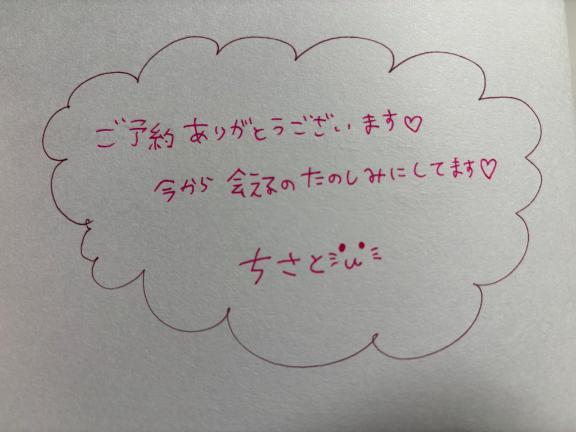 ご予約ありがとうございます♡
今から会えるのたのしみにしてます♡
ちさと